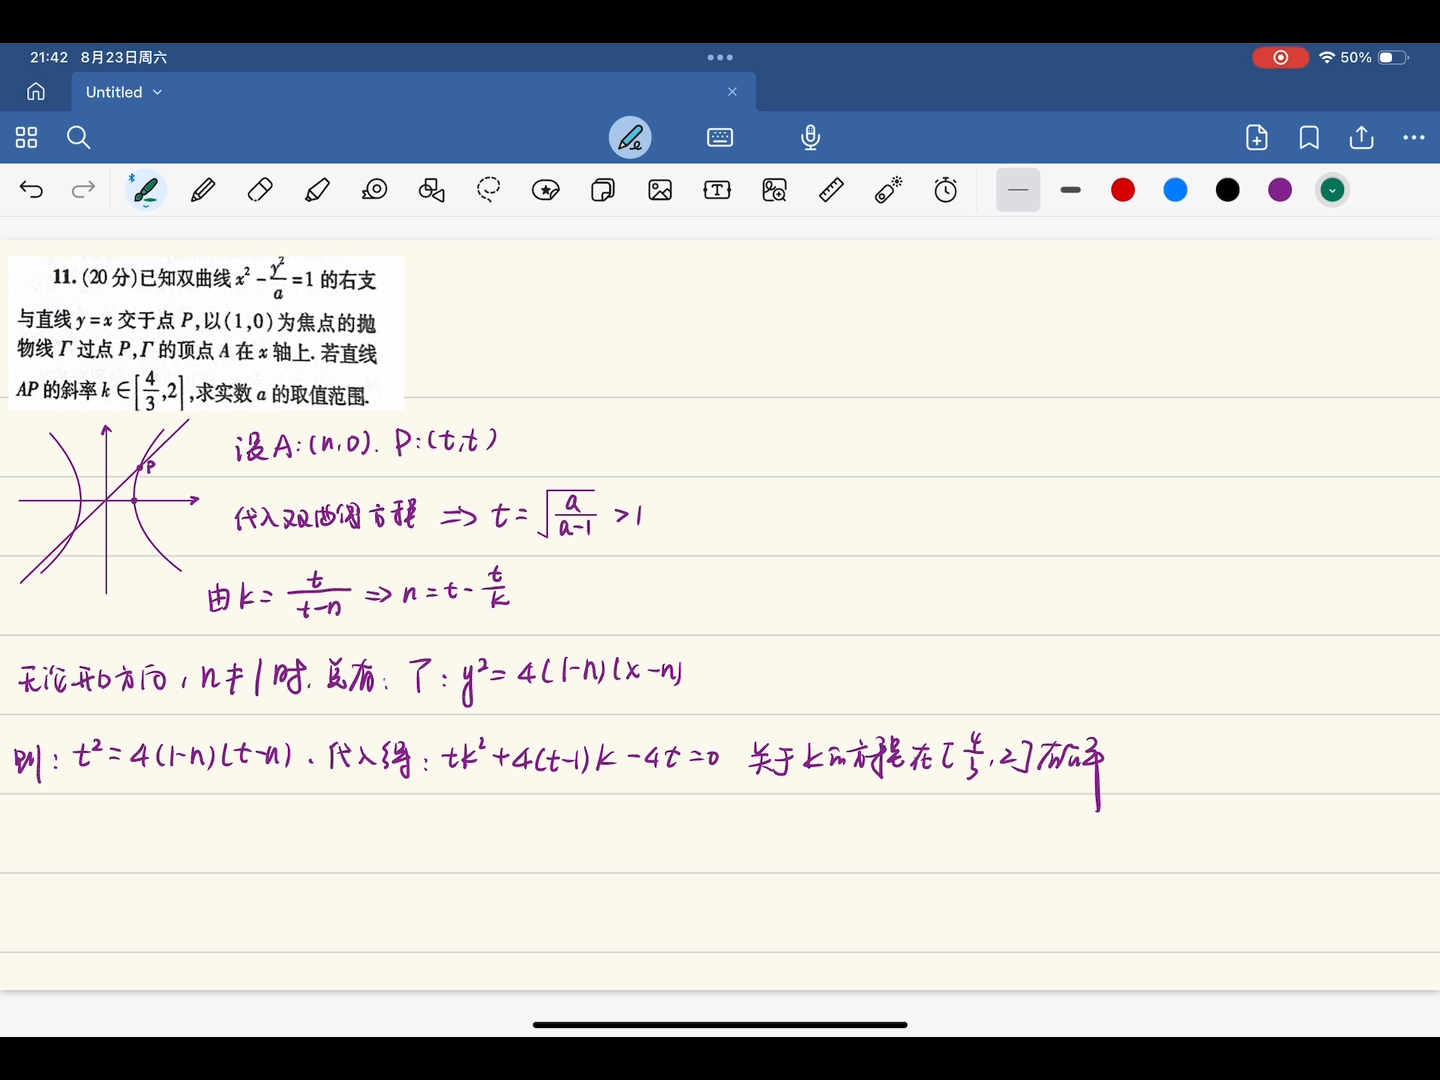 21:42 8月23日周六
50%
Untitled
11. (20 分)已知双曲线 x² - y²/a = 1 的右支
与直线 y = x 交于点 P, 以(1,0)为焦点的抛
物线 Γ 过点 P, Γ 的顶点 A 在 x 轴上. 若直线
AP 的斜率 k ∈ [4/3, 2], 求实数 a 的取值范围.
P
设 A:(n,0). P:(t,t)
代入双曲线方程 ⇒ t = √(a/(a-1)) > 1
由 k = t/(t-n) ⇒ n = t - t/k
无论开口方向, n ≠ 1 时, 总有: Γ: y² = 4(1-n)(x-n)
则: t² = 4(1-n)(t-n). 代入得: tk² + 4(t-1)k - 4t = 0 关于 k 的方程在 [4/3, 2]